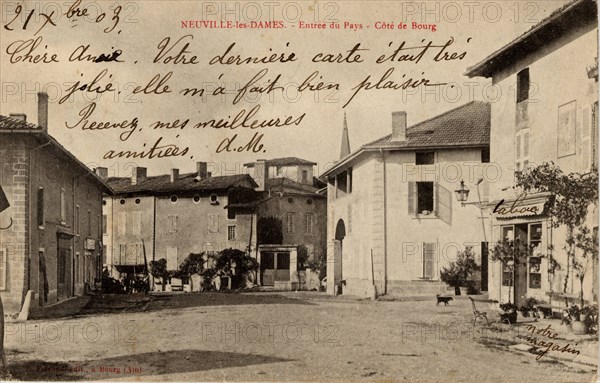 21 Xbre 03
NEUVILLE-les-DAMES. - Entrée du Pays - Côté de Bourg
Chère Amie. Votre dernière carte était très
jolie, elle m'a fait bien plaisir.
Recevez, mes meilleures
amitiées. d.M.
notre
magasin
édit., à Bourg (Ain)